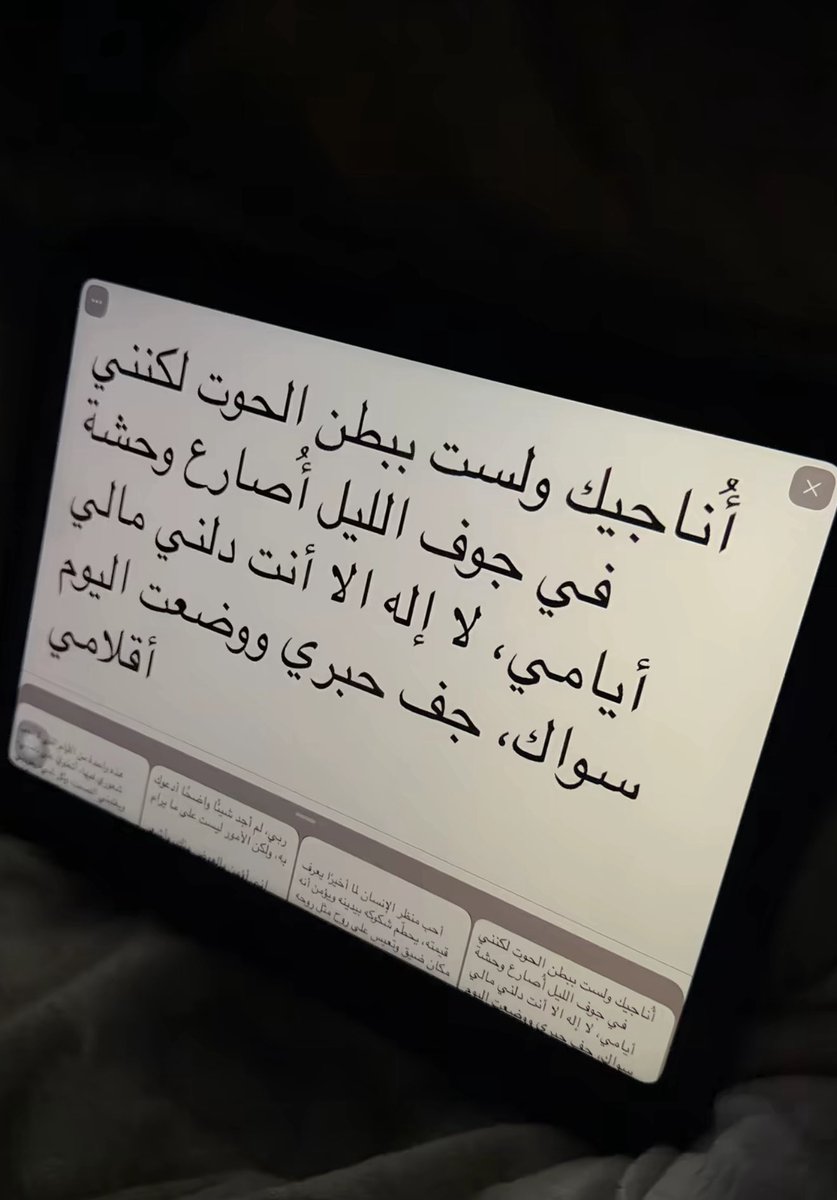 أُناجيك ولست ببطن الحوت لكنني
في جوف الليل أُصارع وحشة
أيامي، لا إله الا أنت دلني مالي
سواك، جف حبري ووضعت اليوم
أقلامي
أُناجيك ولست ببطن الحوت لكنني
في جوف الليل أُصارع وحشة
أيامي، لا إله الا أنت دلني مالي
سواك، جف حبري ووضعت اليوم
أحب منظر الإنسان لما أخيرًا يعرف
قيمته، يحطّم شكوكه بيدينه ويؤمن أنه
مكان ضيق وتعيس على روح مثل روحه
ربي، لم أجد شيئًا واضحًا أدعوك
به، ولكن الأمور ليست على ما يرام
هذه واحدة من